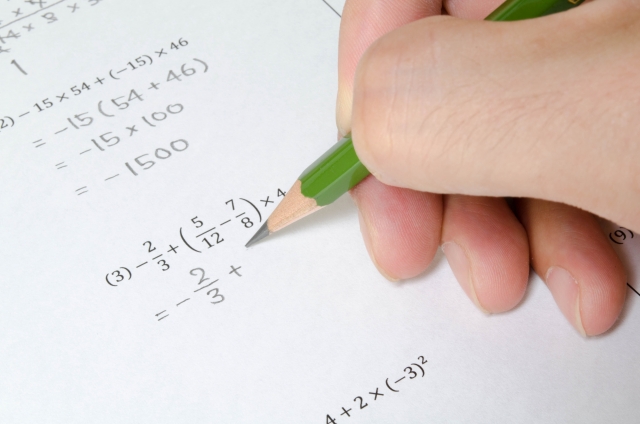 1
2) − 15 × 54 + (−15) × 46
= −15 (54 + 46)
= −15 × 100
= −1500
(3) − 2/3 + (5/12 − 7/8) × 4
= − 2/3 +
4 + 2 × (−3)²
(9)